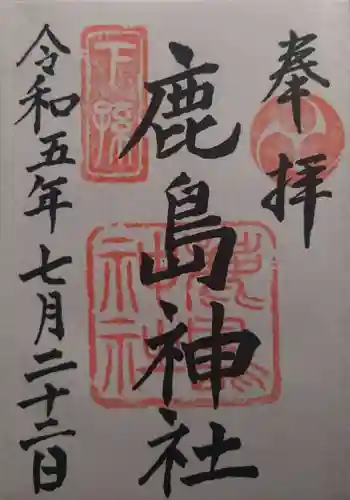 奉拝
鹿島神社
令和五年七月二十二日
下孫
鹿島神社